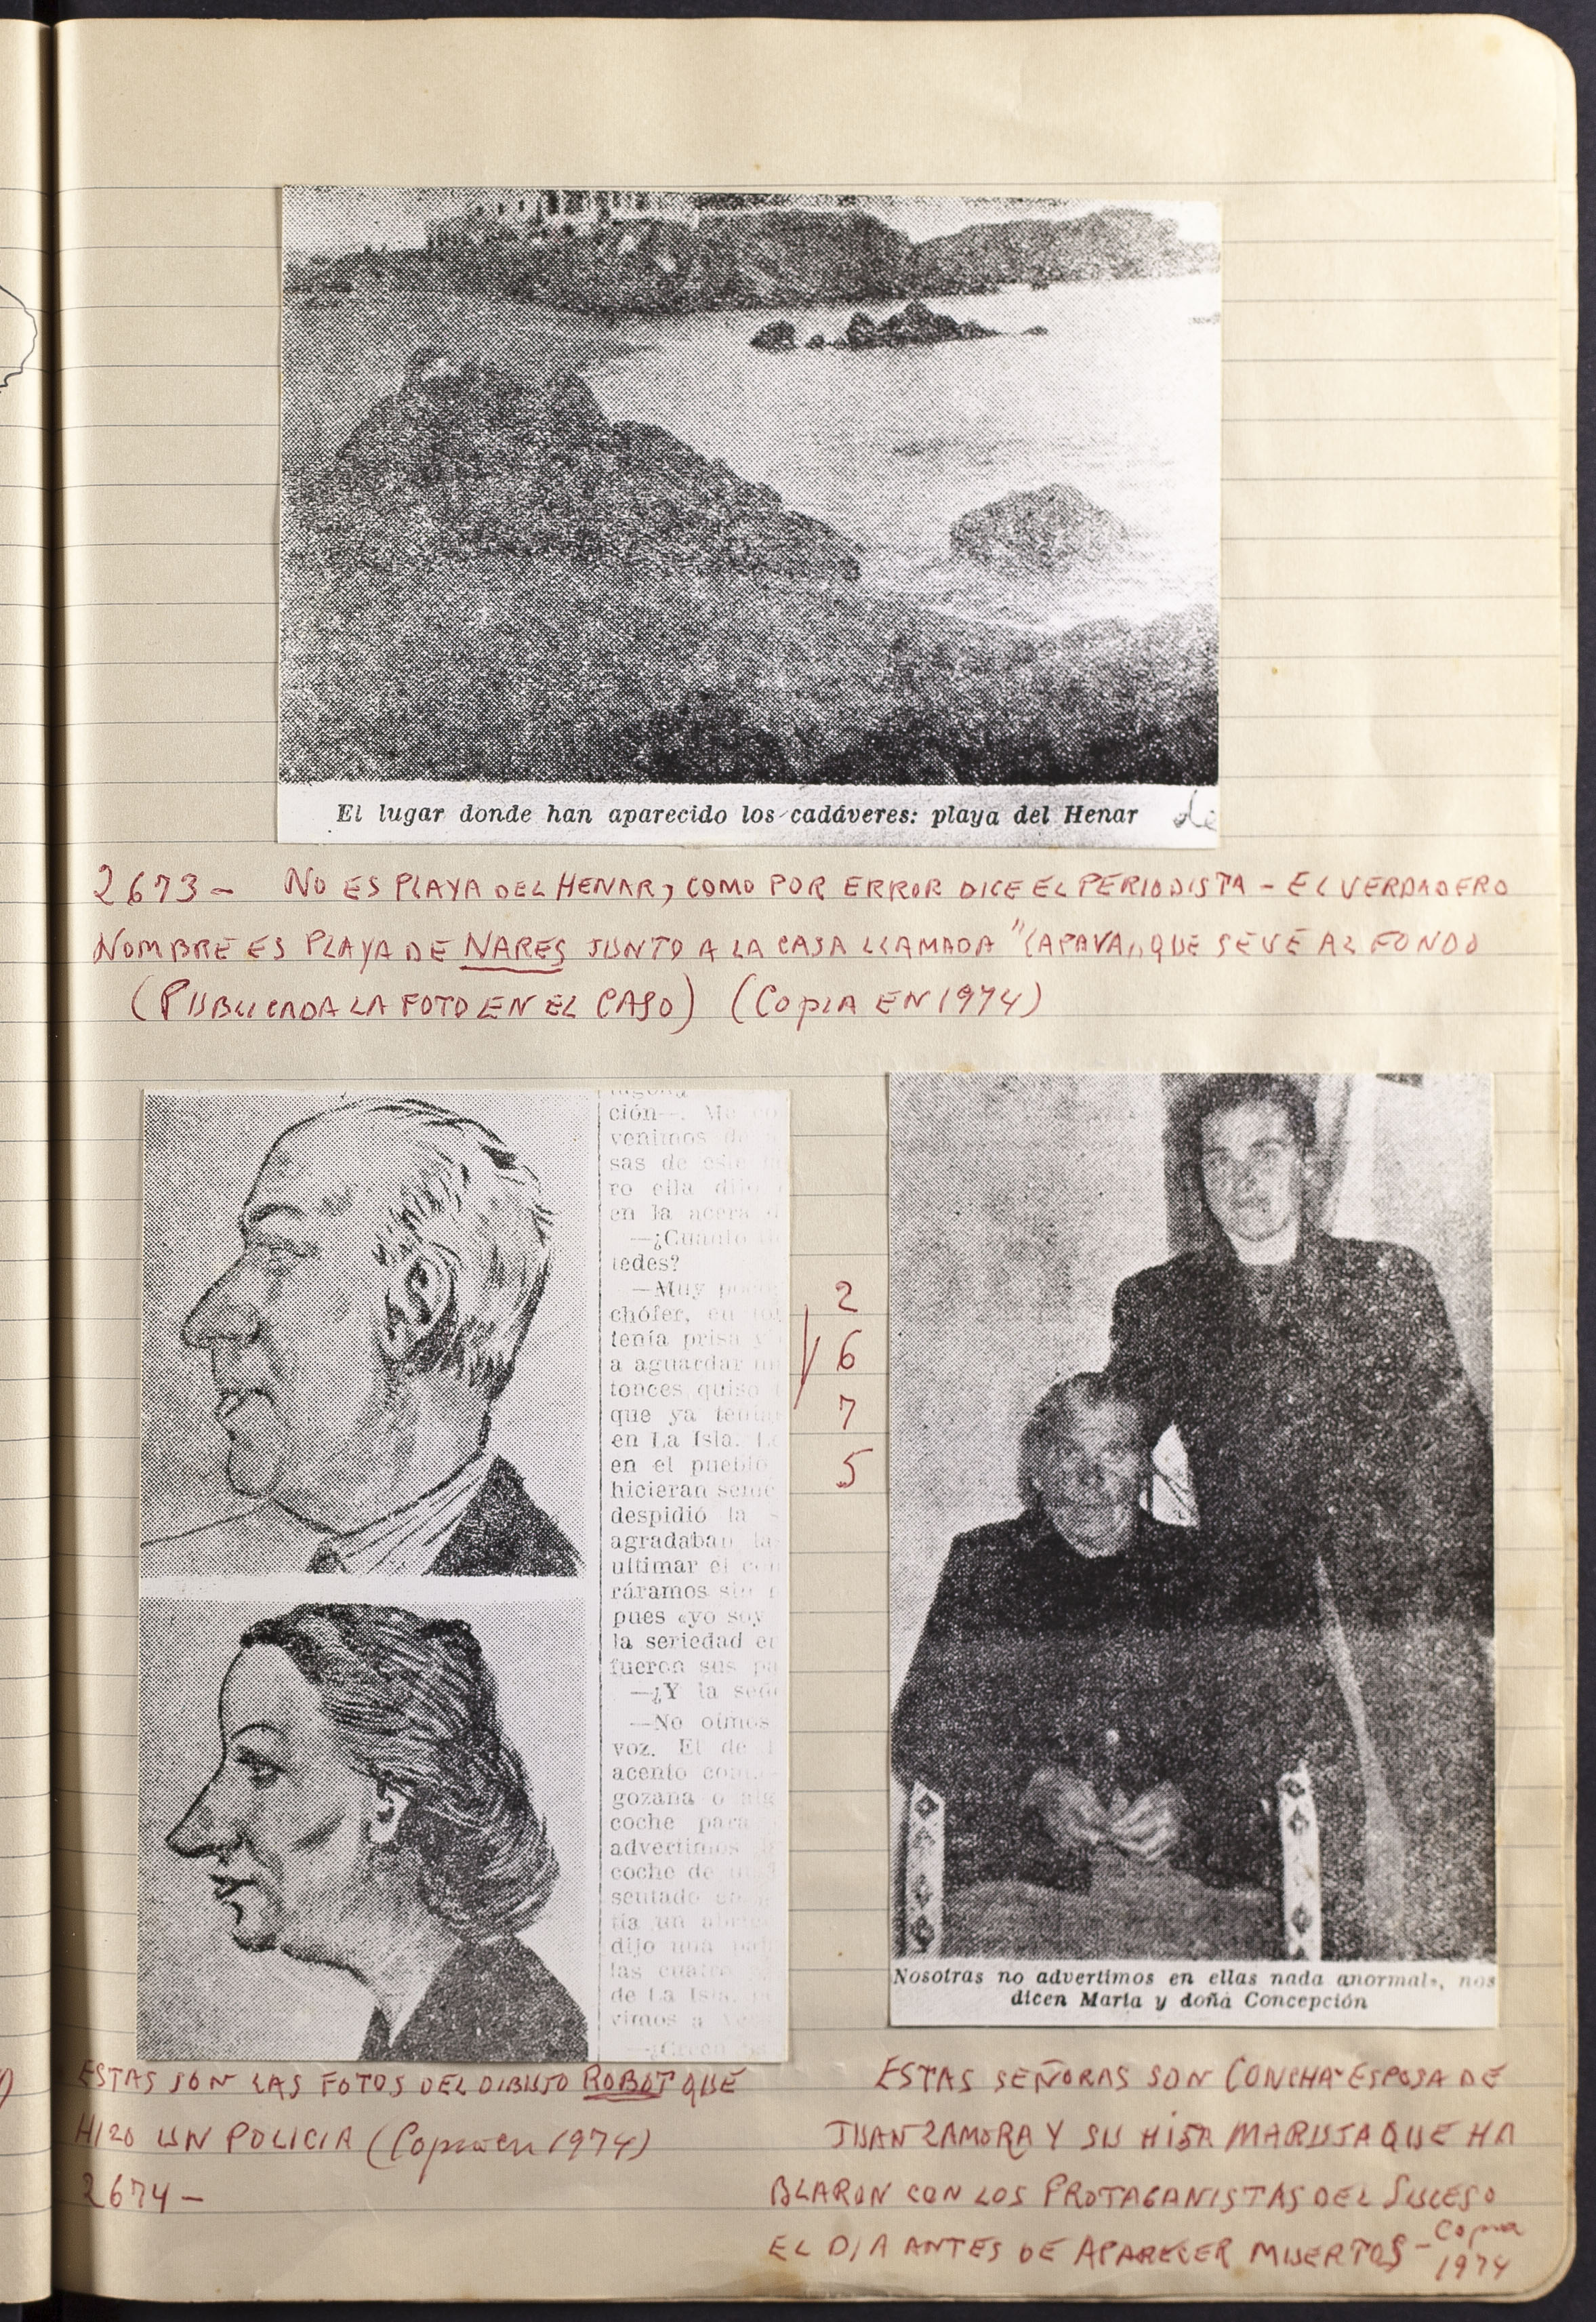 El lugar donde han aparecido los cadáveres: playa del Henar
de
2673- NO ES PLAYA DEL HENAR, COMO POR ERROR DICE EL PERIODISTA - EL VERDADERO
NOMBRE ES PLAYA DE NARES JUNTO A LA CASA LLAMADA "CAPAVA", QUE SE VE AL FONDO
(PUBLICADA LA FOTO EN EL CASO) (COPIA EN 1974)
ción—.
venimos
sas de este
ro ella dijo
en la acera d
—¿Cuánto
tedes?
—Muy
chófer, en
tenía prisa y
a aguardar
tonces quiso
que ya
en La Isla.
en el pueblo
hicieran
despidió la
agradaban la
ultimar el
ráramos sin
pues «yo soy
la seriedad
fueron sus pa
—¿Y la
—No oímos
voz. El de
acento
gozana o
coche para
advertimos
coche de
sentado
tía un
dijo una
las cuatro
de La Isla,
vimos a
—¿Creen
2
6
7
5
Nosotras no advertimos en ellas nada anormal», nos
dicen María y doña Concepción
ESTAS SON LAS FOTOS DEL DIBUJO ROBOT QUE
HIZO UN POLICIA (Copia en 1974)
2674-
ESTAS SEÑORAS SON CONCHA-ESPOSA DE
JUAN ZAMORA Y SU HIJA MARUJA QUE HA
BLARON CON LOS PROTAGANISTAS DEL SUCESO
EL DIA ANTES DE APARECER MUERTOS - Copia
1974